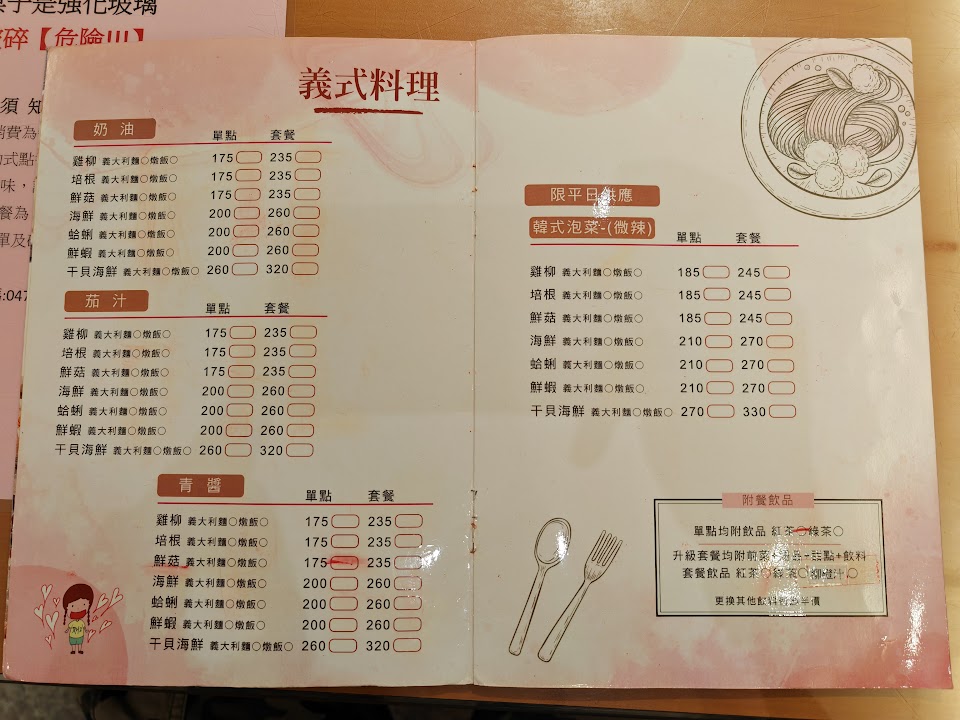 桌子是強化玻璃
碎【危險!!!】
須知
消費為
式點
味，
餐為
單及
:047
義式料理
奶油 單點 套餐
雞柳 義大利麵○燉飯○ 175 235
培根 義大利麵○燉飯○ 175 235
鮮菇 義大利麵○燉飯○ 175 235
海鮮 義大利麵○燉飯○ 200 260
蛤蜊 義大利麵○燉飯○ 200 260
鮮蝦 義大利麵○燉飯○ 200 260
干貝海鮮 義大利麵○燉飯○ 260 320
茄汁 單點 套餐
雞柳 義大利麵○燉飯○ 175 235
培根 義大利麵○燉飯○ 175 235
鮮菇 義大利麵○燉飯○ 175 235
海鮮 義大利麵○燉飯○ 200 260
蛤蜊 義大利麵○燉飯○ 200 260
鮮蝦 義大利麵○燉飯○ 200 260
干貝海鮮 義大利麵○燉飯○ 260 320
青醬 單點 套餐
雞柳 義大利麵○燉飯○ 175 235
培根 義大利麵○燉飯○ 175 235
鮮菇 義大利麵○燉飯○ 175 235
海鮮 義大利麵○燉飯○ 200 260
蛤蜊 義大利麵○燉飯○ 200 260
鮮蝦 義大利麵○燉飯○ 200 260
干貝海鮮 義大利麵○燉飯○ 260 320
限平日供應
韓式泡菜-(微辣) 單點 套餐
雞柳 義大利麵○燉飯○ 185 245
培根 義大利麵○燉飯○ 185 245
鮮菇 義大利麵○燉飯○ 185 245
海鮮 義大利麵○燉飯○ 210 270
蛤蜊 義大利麵○燉飯○ 210 270
鮮蝦 義大利麵○燉飯○ 210 270
干貝海鮮 義大利麵○燉飯○ 270 330
附餐飲品
單點均附飲品 紅茶○綠茶○
升級套餐均附前菜+湯品+甜點+飲料
套餐飲品 紅茶○綠茶○柳橙汁○
更換其他飲料 半價